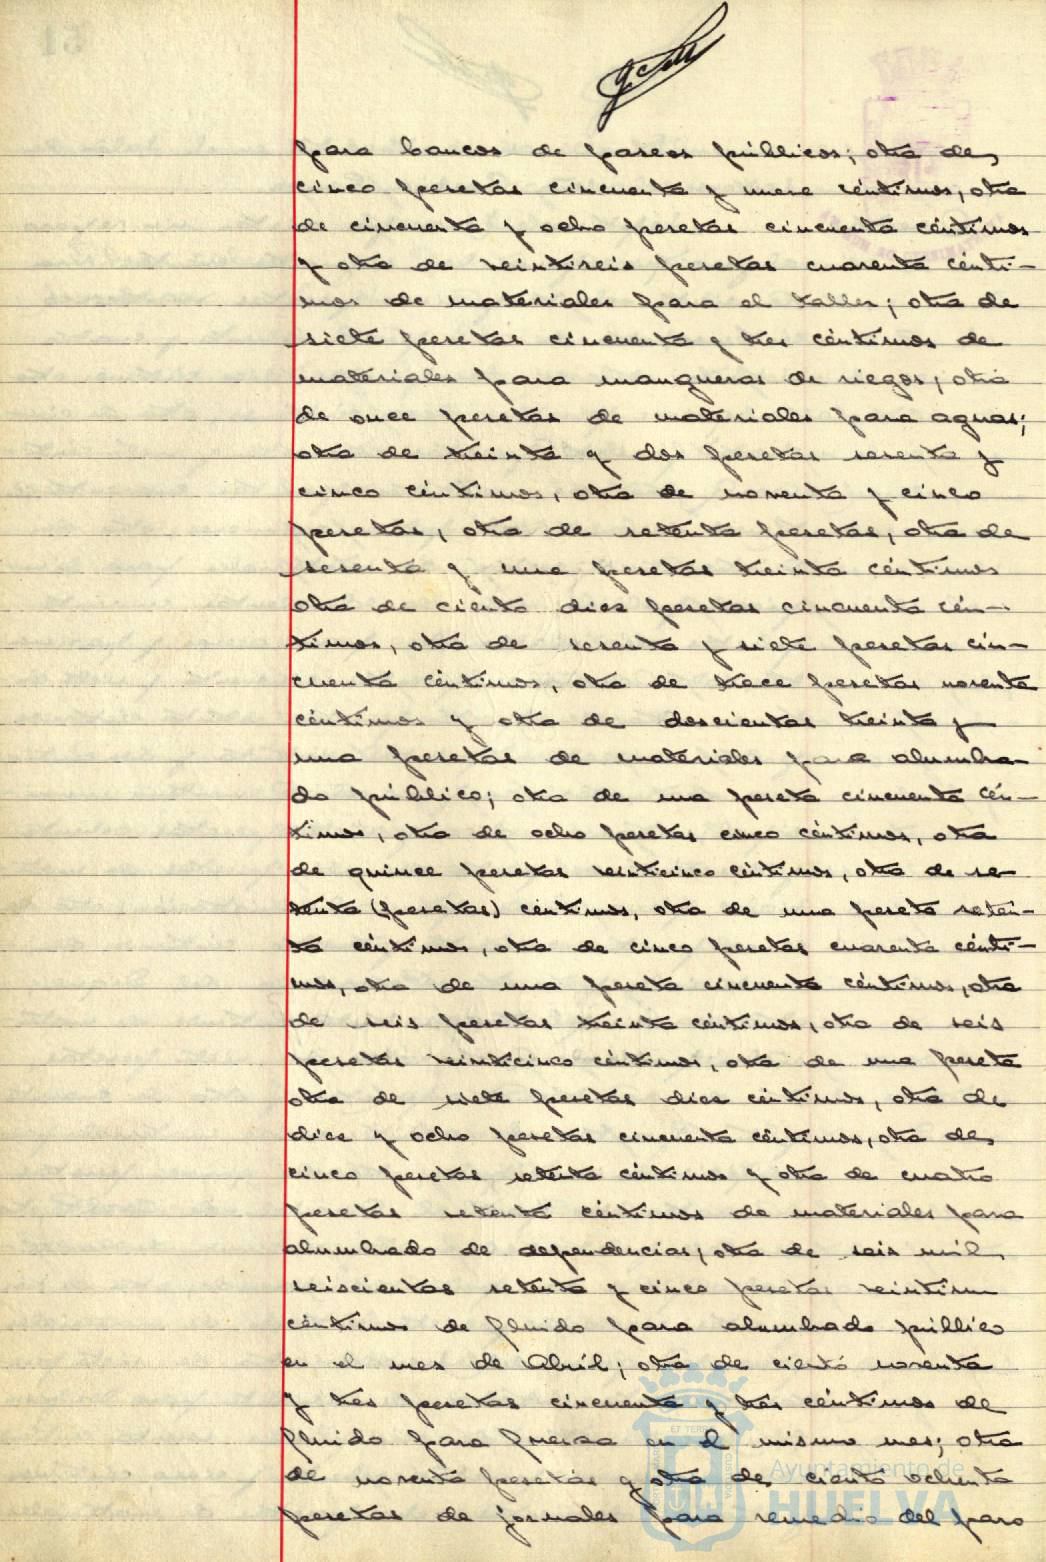 para bancos de paseos públicos; otra de
cinco pesetas cincuenta y nueve céntimos, otra
de cincuenta y ocho pesetas cincuenta céntimos
y otra de veintiseis pesetas cuarenta cénti-
mos de materiales para el taller; otra de
siete pesetas cincuenta y tres céntimos de
materiales para mangueras de riegos; otra
de once pesetas de materiales para aguas;
otra de treinta y dos pesetas sesenta y
cinco céntimos, otra de noventa y cinco
pesetas, otra de setenta pesetas, otra de
sesenta y una pesetas treinta céntimos
otra de ciento diez pesetas cincuenta cén-
timos, otra de sesenta y siete pesetas cin-
cuenta céntimos, otra de trece pesetas noventa
céntimos y otra de doscientas treinta y
una pesetas de materiales para alumbra-
do público; otra de una peseta cincuenta cén-
timos, otra de ocho pesetas cinco céntimos, otra
de quince pesetas veinticinco céntimos, otra de se-
tenta (pesetas) céntimos, otra de una peseta seten-
ta céntimos, otra de cinco pesetas cuarenta cénti-
mos, otra de una peseta cincuenta céntimos, otra
de seis pesetas treinta céntimos, otra de seis
pesetas veinticinco céntimos, otra de una peseta
otra de siete pesetas diez céntimos, otra de
diez y ocho pesetas cincuenta céntimos, otra de
cinco pesetas setenta céntimos y otra de cuatro
pesetas setenta céntimos de materiales para
alumbrado de dependencias; otra de seis mil
seiscientas setenta y cinco pesetas veintiun
céntimos de fluido para alumbrado público
en el mes de Abril; otra de ciento noventa
y tres pesetas cincuenta y tres céntimos de
fluido para fuerza en el mismo mes; otra
de noventa pesetas y otra de ciento ochenta
pesetas de jornales para remedio del paro
Ayuntamiento de
HUELVA